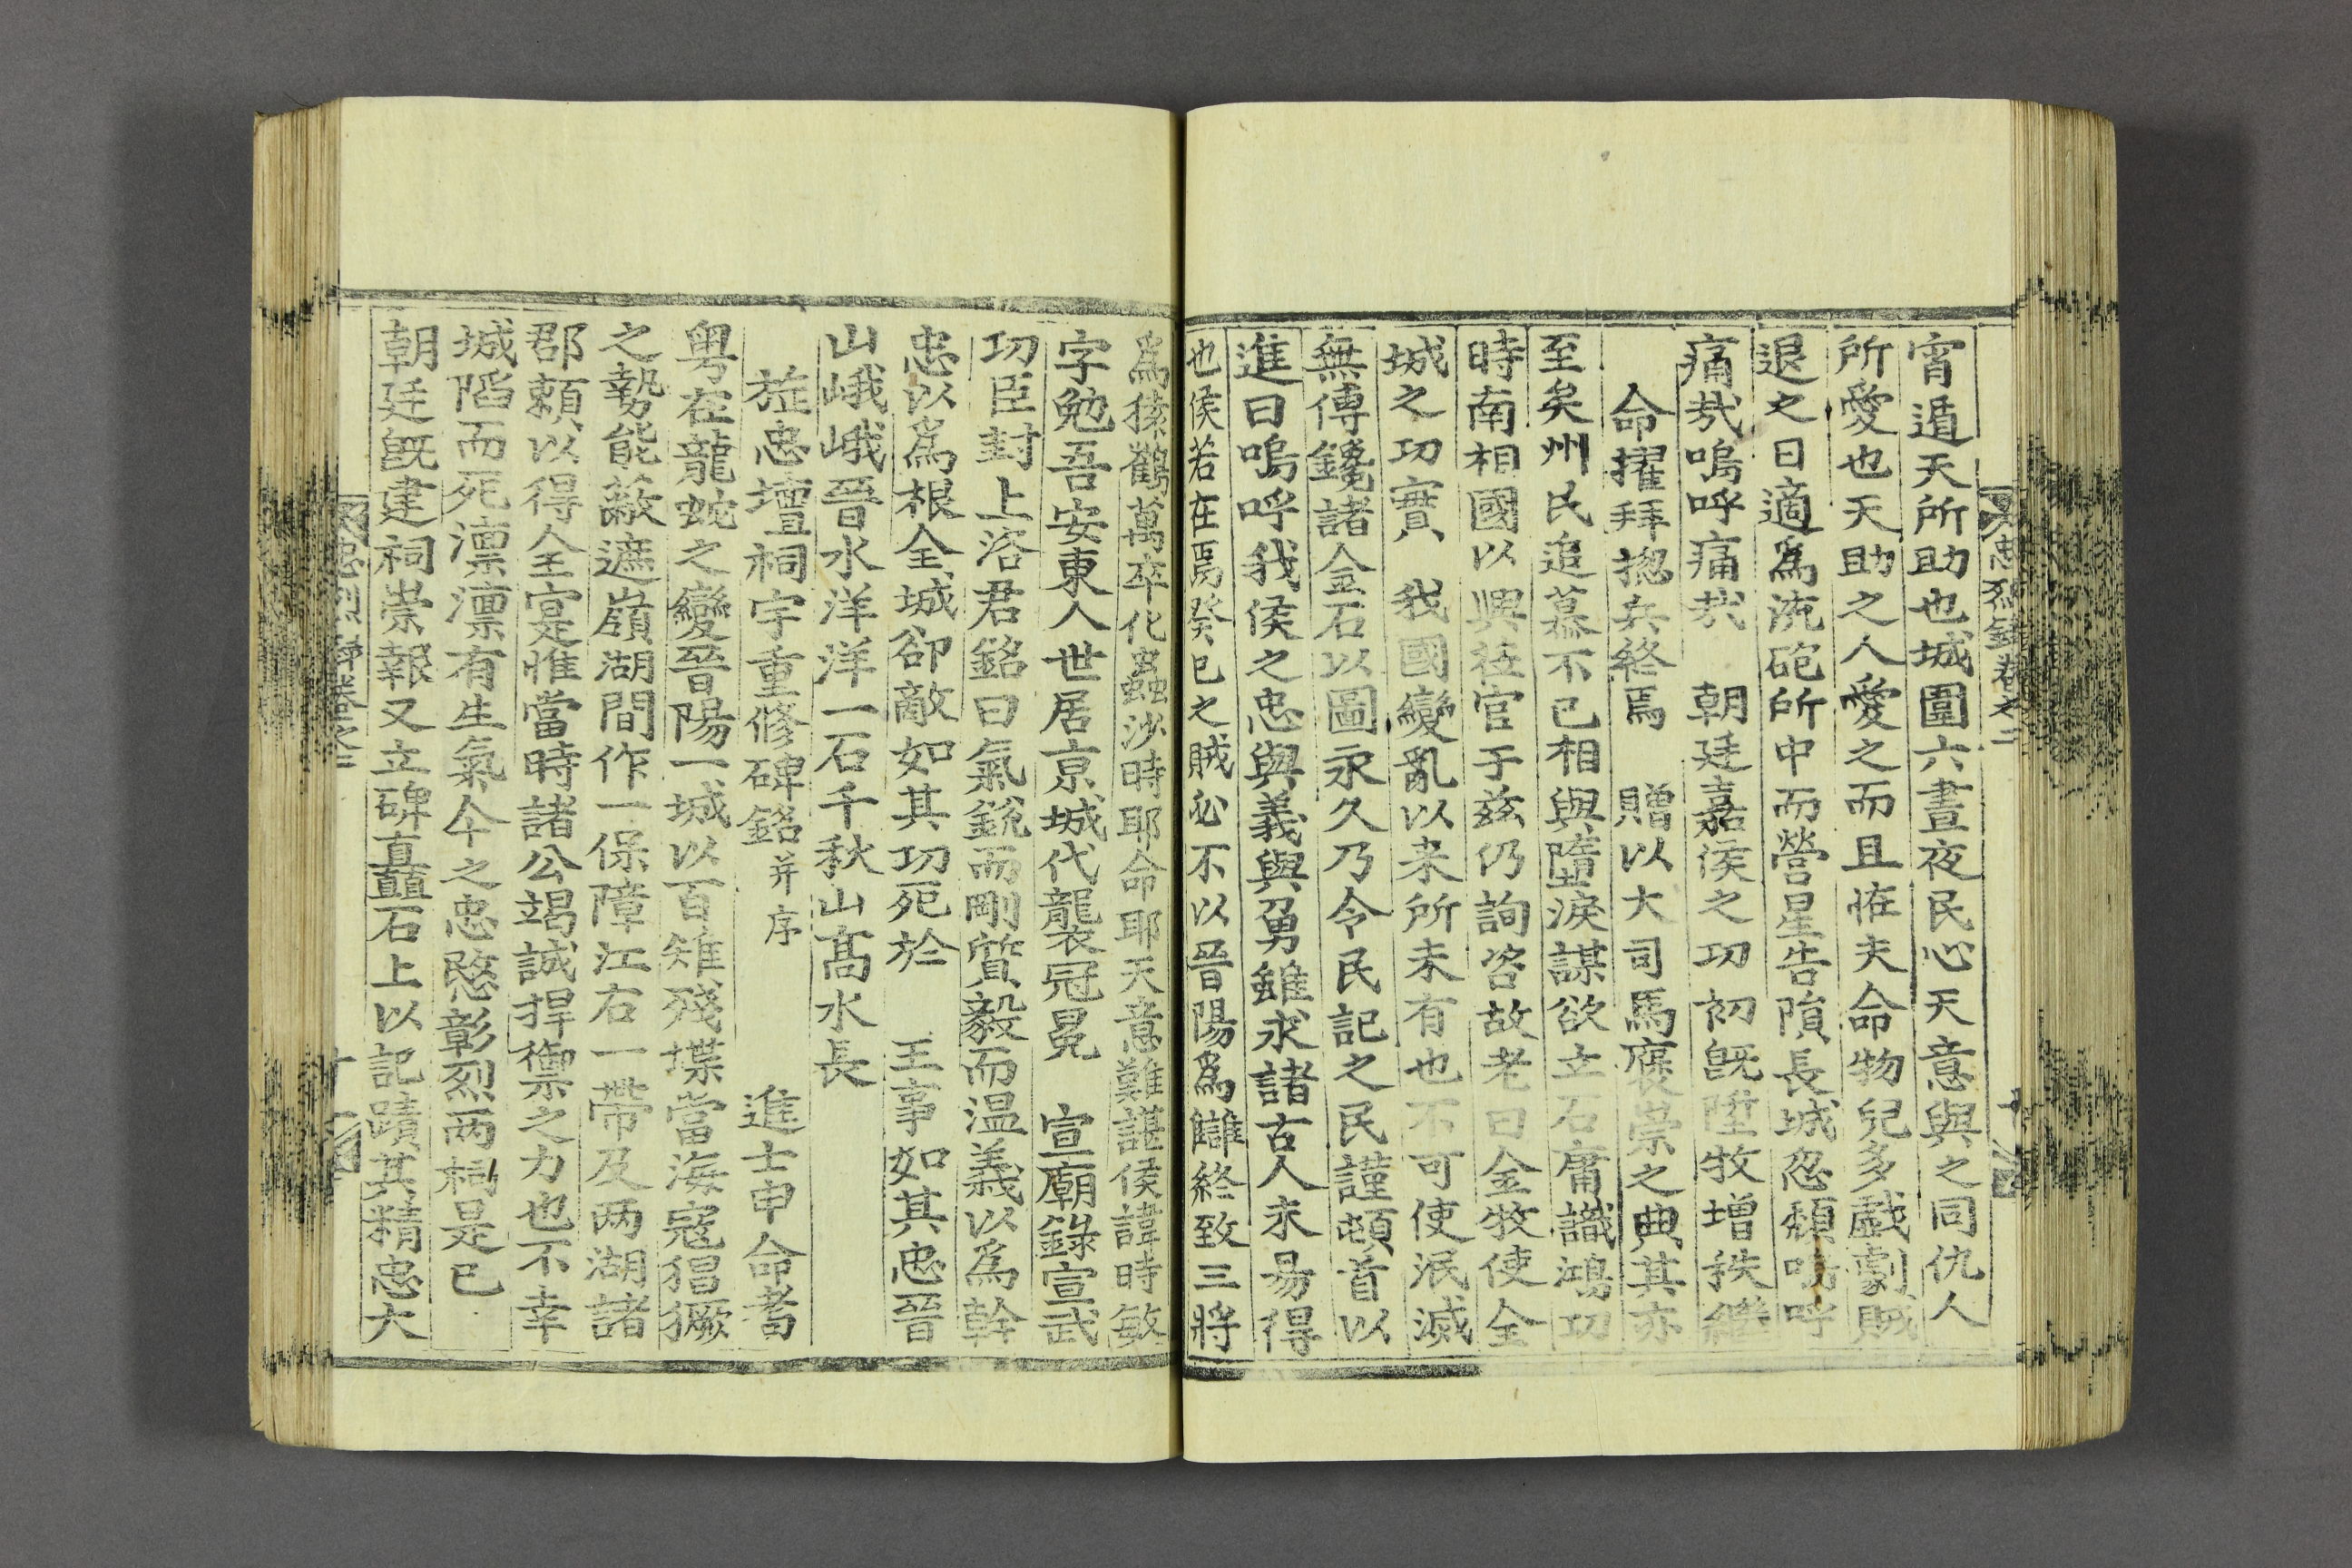 宵遁天所助也城圍六晝夜民心天意與之同仇人
所愛也天助之人愛之而且恠夫命物兒多戱劇賊
退之日適爲流砲所中而營星告隕長城忽頹嗚呼
痛㢤嗚呼痛㢤 朝廷嘉侯之功初旣陞牧增秩繼
命擢拜捴兵終焉 贈以大司馬褒崇之典其亦
至矣州民追慕不已相與墮淚謀欲立石庸識鴻功
時南相國以興莅官于兹仍詢咨故老曰金牧使全
城之功實 我國變亂以来所未有也不可使泯滅
無傳鑱諸金石以圖永久乃令民記之民謹頓首以
進曰嗚呼我侯之忠與義與勇雖求諸古人未易得
也侯若在焉癸巳之賊必不以晉陽爲讎終致三將
爲猿鶴萬卒化蟲沙時耶命耶天意難諶侯諱時敏
字勉吾安東人世居京城代襲冠冕 宣廟錄宣武
功臣封上洛君銘曰氣銳而剛質毅而温義以爲幹
忠以爲根全城卻敵如其功死於 王事如其忠晉
山峨峨晉水洋洋一石千秋山髙水長
旌忠壇祠宇重修碑銘 并序 進士申命耉
粤在龍蛇之變晉陽一城以百雉殘堞當海寇猖獗
之勢能蔽遮嶺湖間作一保障江右一帶及两湖諸
郡頼以得全寔惟當時諸公竭誠捍禦之力也不幸
城䧟而死凛凛有生氣今之忠愍彰烈两祠是已
朝廷旣建祠崇報又立碑矗石上以記蹟其精忠大
忠烈錄卷之二
忠烈錄卷之二